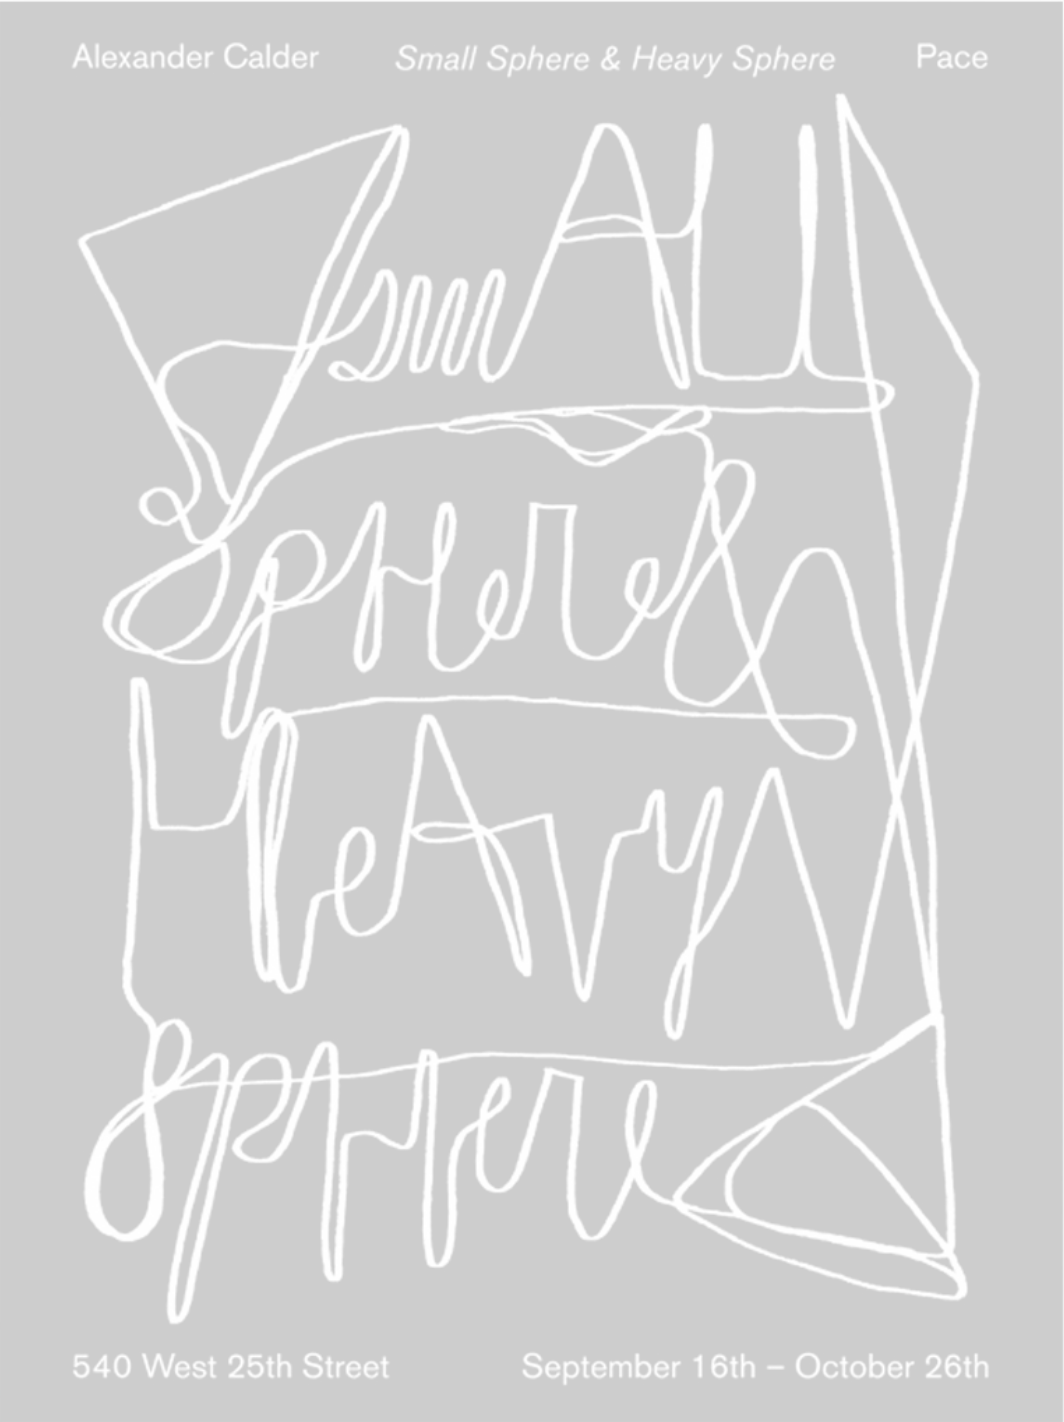 Alexander Calder Small Sphere & Heavy Sphere Pace
SmALL
SpHere&
HeAvy
SpHere
540 West 25th Street September 16th – October 26th